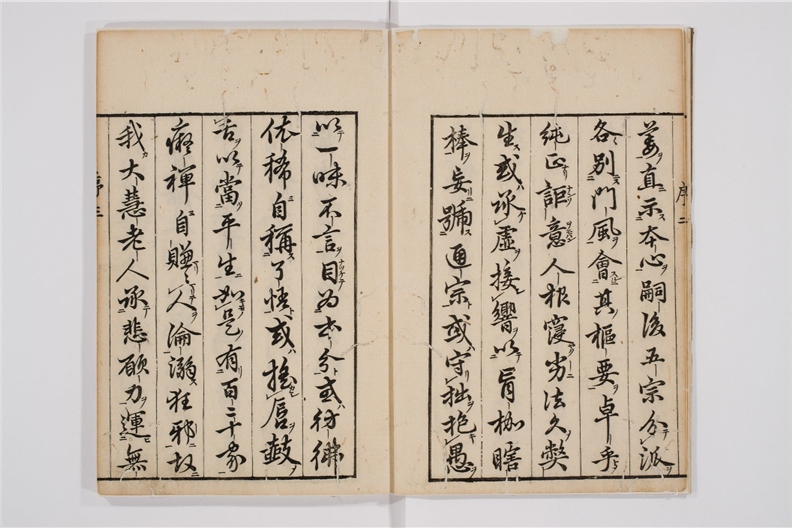 序二
直示本心嗣後五宗分派
各別門風會其樞要卓乎
純正詎意人根寖劣法久弊
生或承虛接響以盲枷瞎
棒妄號通宗或守拙抱愚
以一味不言目为本分或彷彿
依稀自稱了悟或搖唇鼓
舌以當平生如是有百二十家
癡禪自賺〻人淪溺狂邪故
我大慧老人承悲願力運無
序三